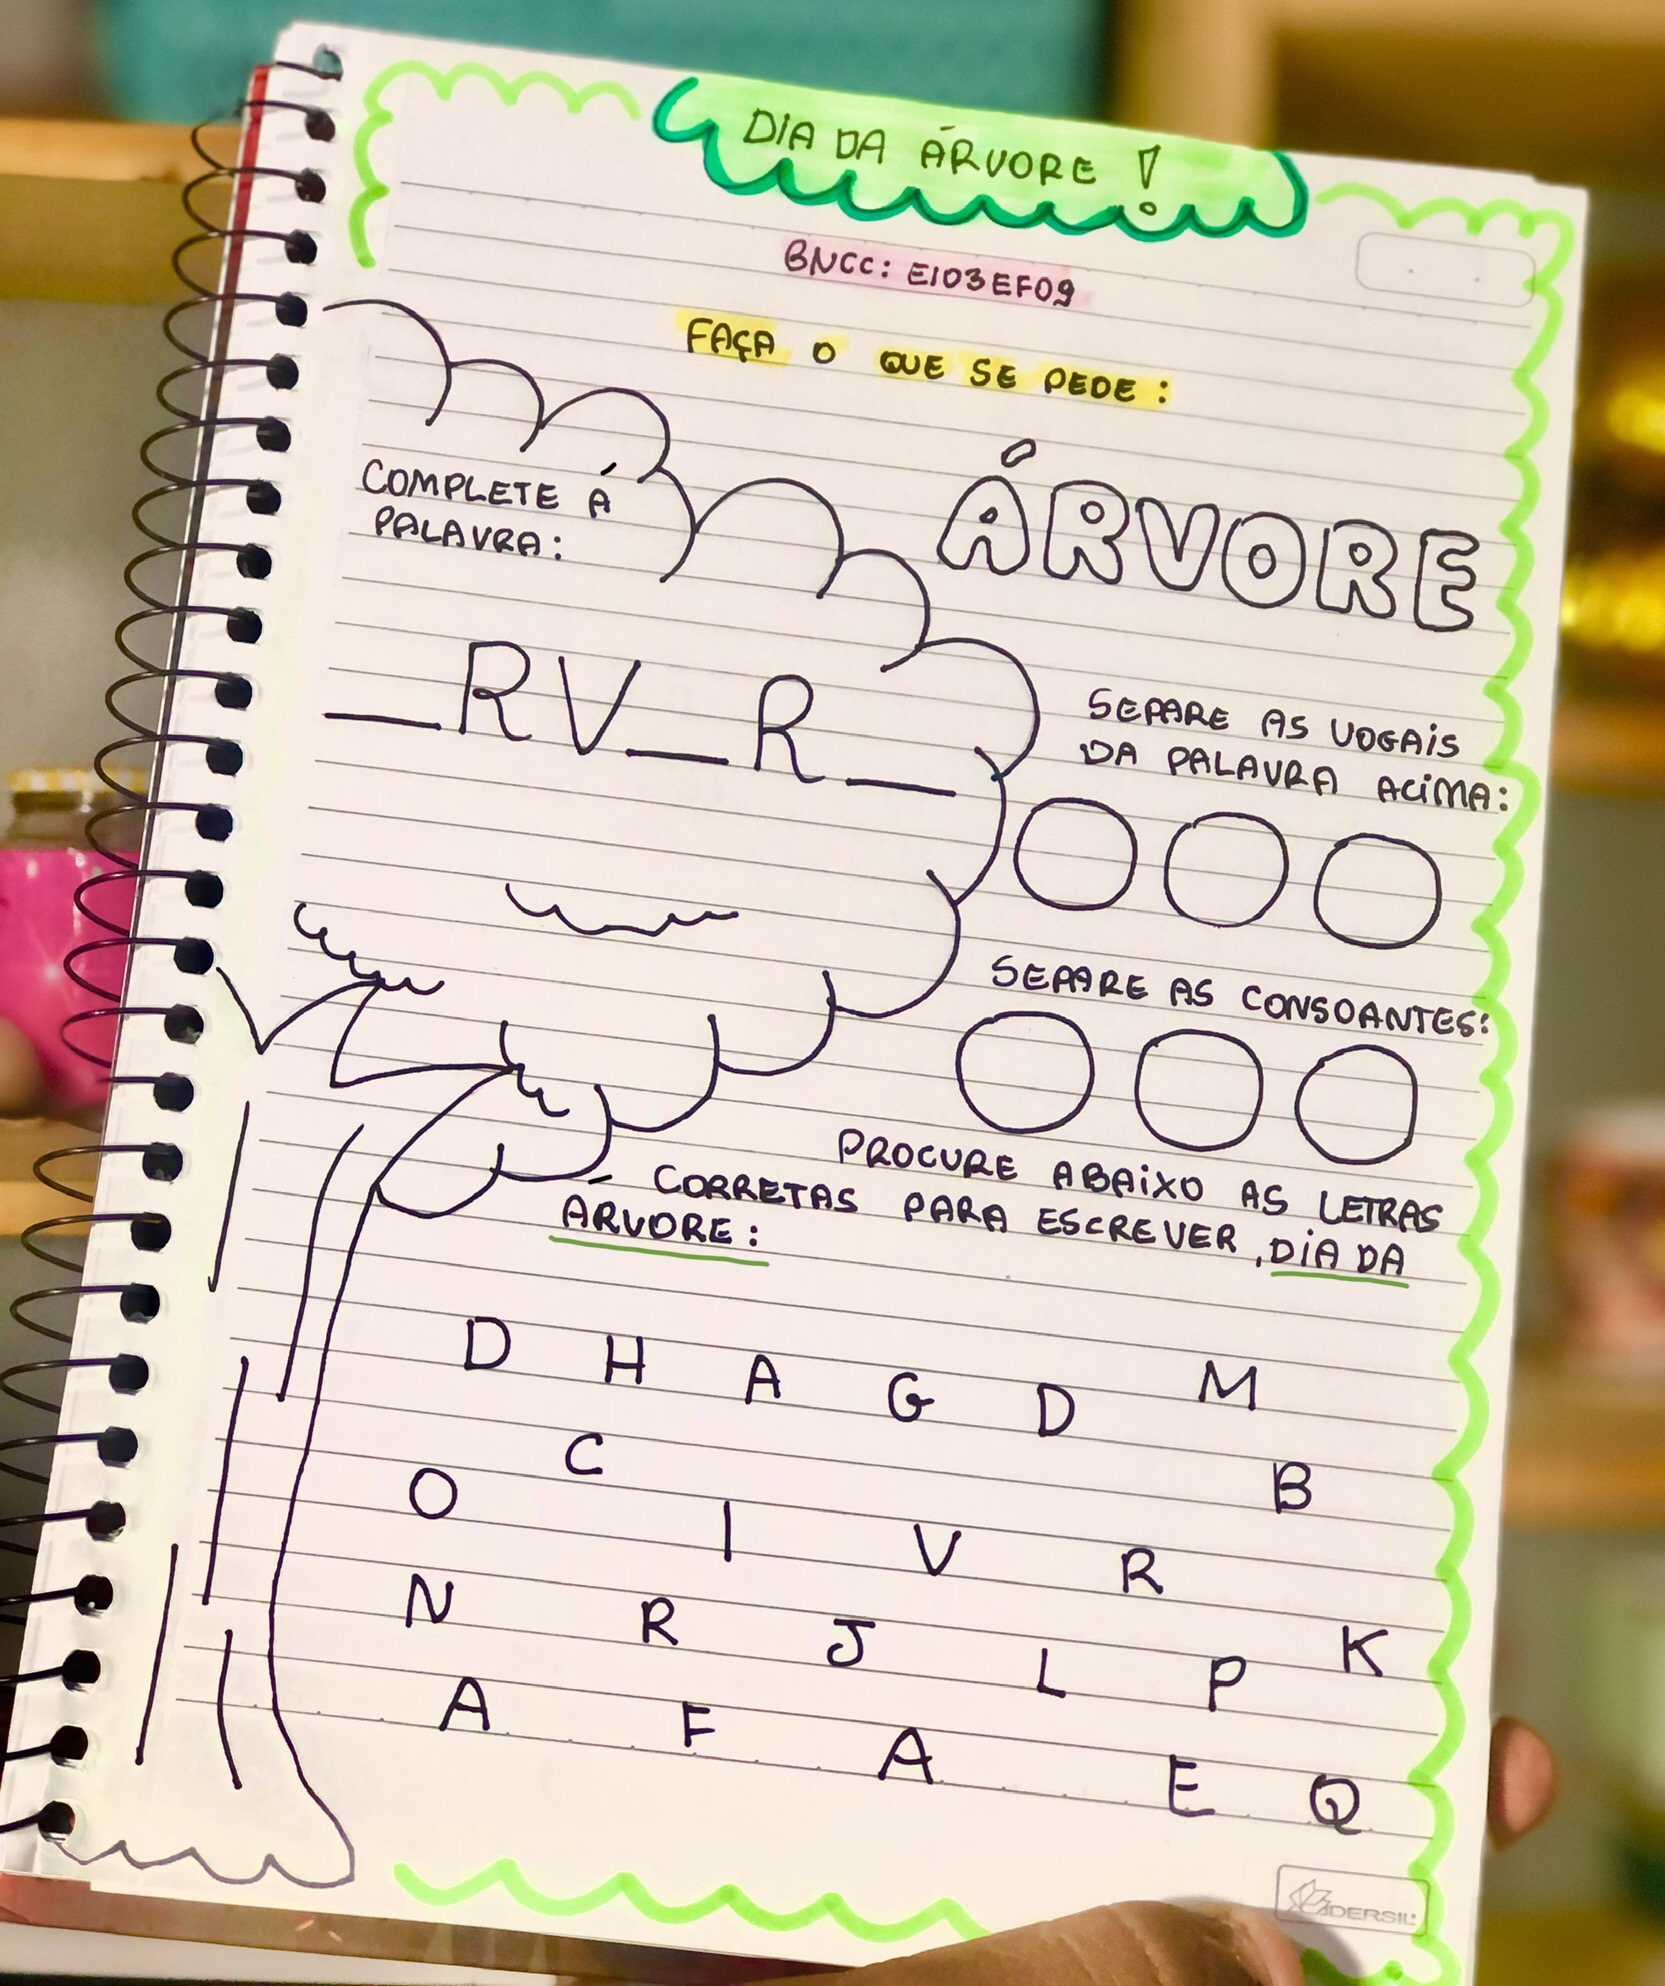 DIA DA ÁRVORE !
BNCC: EI03EF09
FAÇA O QUE SE PEDE:
COMPLETE Á
PALAVRA:
ÁRVORE
_RV_R_
SEPARE AS VOGAIS
DA PALAVRA ACIMA:
SEPARE AS CONSOANTES:
PROCURE ABAIXO AS LETRAS
CORRETAS PARA ESCREVER, DIA DA
ÁRVORE:
D H A G D M
C B
O I V R
N R J L P K
A F A E Q